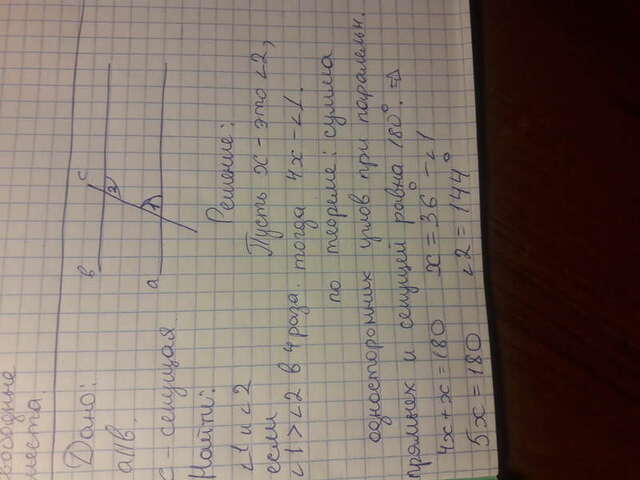 свободные
места.
Дано:
a||b.
c - секущая
Найти:
∠1 и ∠2
если
∠1 > ∠2 в 4 раза.
в
c
2
a
1
Решение:
Пусть x - это ∠2,
тогда 4x - ∠1.
по теореме: сумма
односторонних углов при паралельн.
прямых и секущей равна 180°. ⇒
4x + x = 180
5x = 180
x = 36° - ∠1
∠2 = 144°